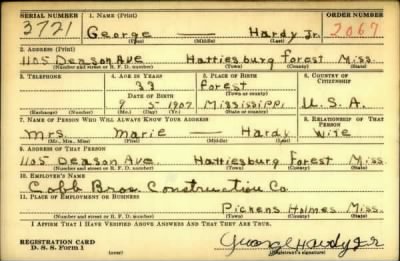 SERIAL NUMBER 1. NAME (Print) ORDER NUMBER
3721 George — Hardy Jr. 2067
(First) (Middle) (Last)
2. ADDRESS (Print)
1105 Deason Ave Hattiesburg Forest Miss.
(Number and street or R. F. D. number) (Town) (County) (State)
3. TELEPHONE 4. AGE IN YEARS 5. PLACE OF BIRTH 6. COUNTRY OF CITIZENSHIP
33 Forest
DATE OF BIRTH (Town or county)
9 5 1907 Mississippi U.S.A.
(Exchange) (Number) (Mo.) (Day) (Yr.) (State or country)
7. NAME OF PERSON WHO WILL ALWAYS KNOW YOUR ADDRESS 8. RELATIONSHIP OF THAT PERSON
Mrs. Marie — Hardy Wife
(Mr., Mrs., Miss) (First) (Middle) (Last)
9. ADDRESS OF THAT PERSON
1105 Deason Ave. Hattiesburg Forest Miss.
(Number and street or R. F. D. number) (Town) (County) (State)
10. EMPLOYER'S NAME
Cobb Bros. Construction Co.
11. PLACE OF EMPLOYMENT OR BUSINESS
Pickens Holmes Miss.
(Number and street or R. F. D. number) (Town) (County) (State)
I AFFIRM THAT I HAVE VERIFIED ABOVE ANSWERS AND THAT THEY ARE TRUE.
REGISTRATION CARD
D. S. S. Form 1 (over) George Hardy Jr
(Registrant's signature)